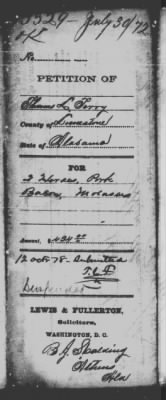 5529 - July 30/72
No.
PETITION OF
Thomas L. Terry
County of Limestone
State of Alabama
FOR
2 Horses, Pork
Bacon, Molasses
Amount, $424.00
12 Oct 78. Submitted
LEWIS & FULLERTON,
Solicitors,
WASHINGTON, D. C.
B. J. Spalding
Athens
Ala